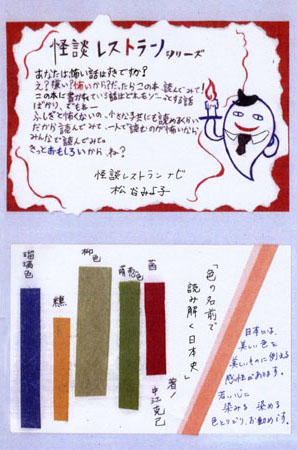 怪談レストランシリーズ
あなたは怖い話はすきですか?
え?嫌い?怖いから?だったらこの本、読んでみて!
この本に書かれている話はどれもゾーっとする話
ばかり。でもネー
ふしぎと怖くないの。小さな子にも読めるくらい
だから読んでみて。一人で読むのが怖いなら
みんなで読んでみて。
きっとおもしろいから ね?
怪談レストランナビ
松谷みよ子
「色の名前で
読み解く日本史」
著/中江克己
茜
萌葱色
柳色
瑠璃色
日本には、
美しい色と
美しいものに例える
感性があります。
若い心に
染みる 染める
色とりどり、お勧めです。